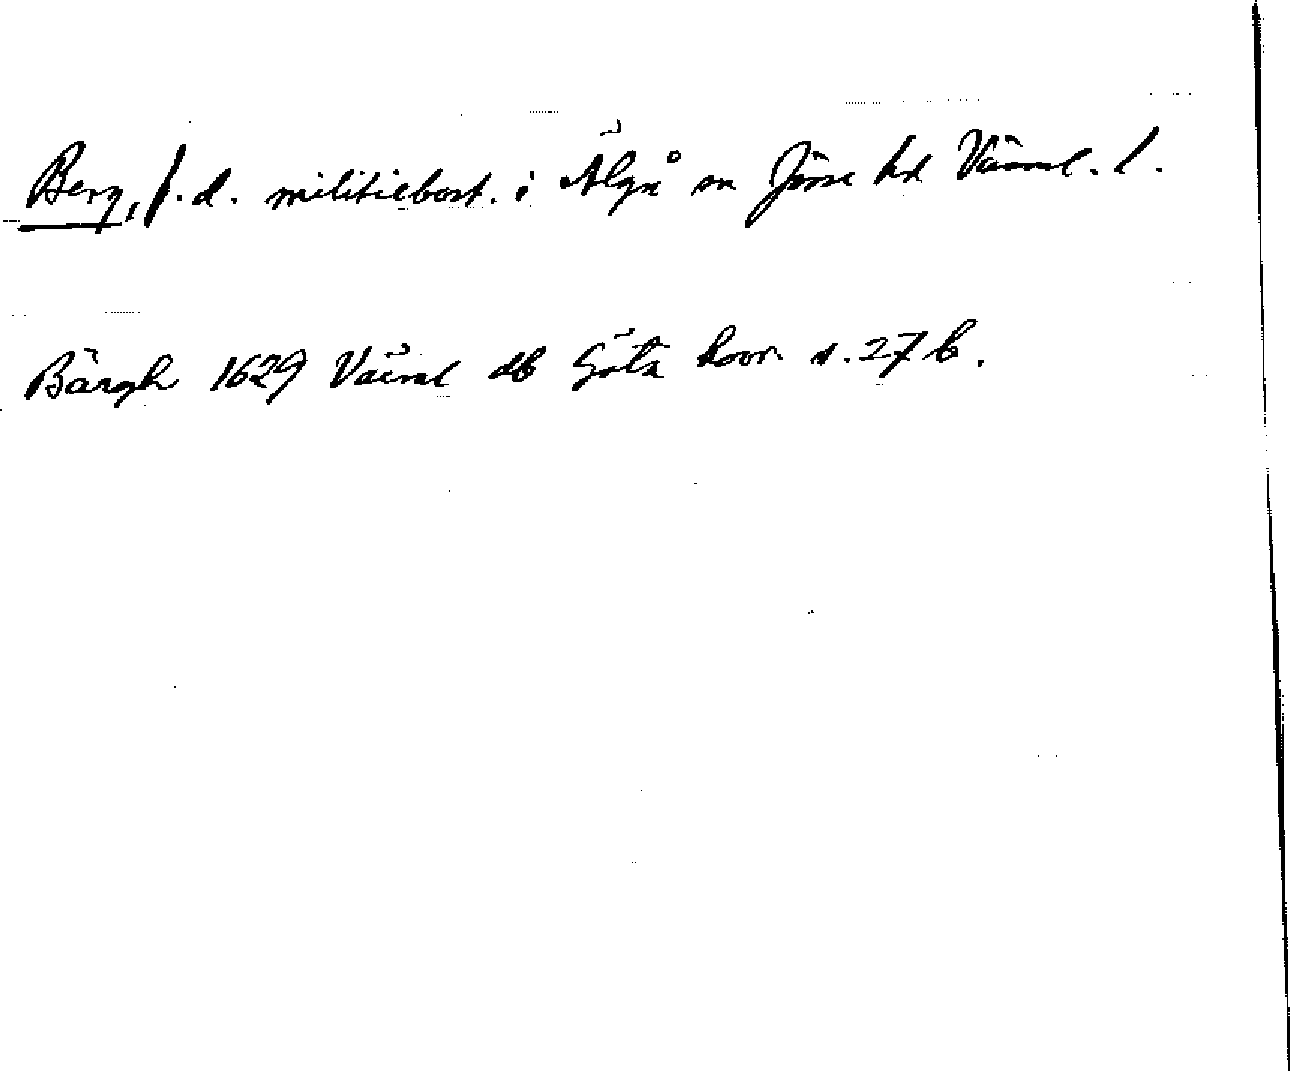 Berg, f.d. militiebost. i Älgå sn Jösse hd Värml. l.
Bärgh 1629 Värml db Göta hovr. s. 27 b.